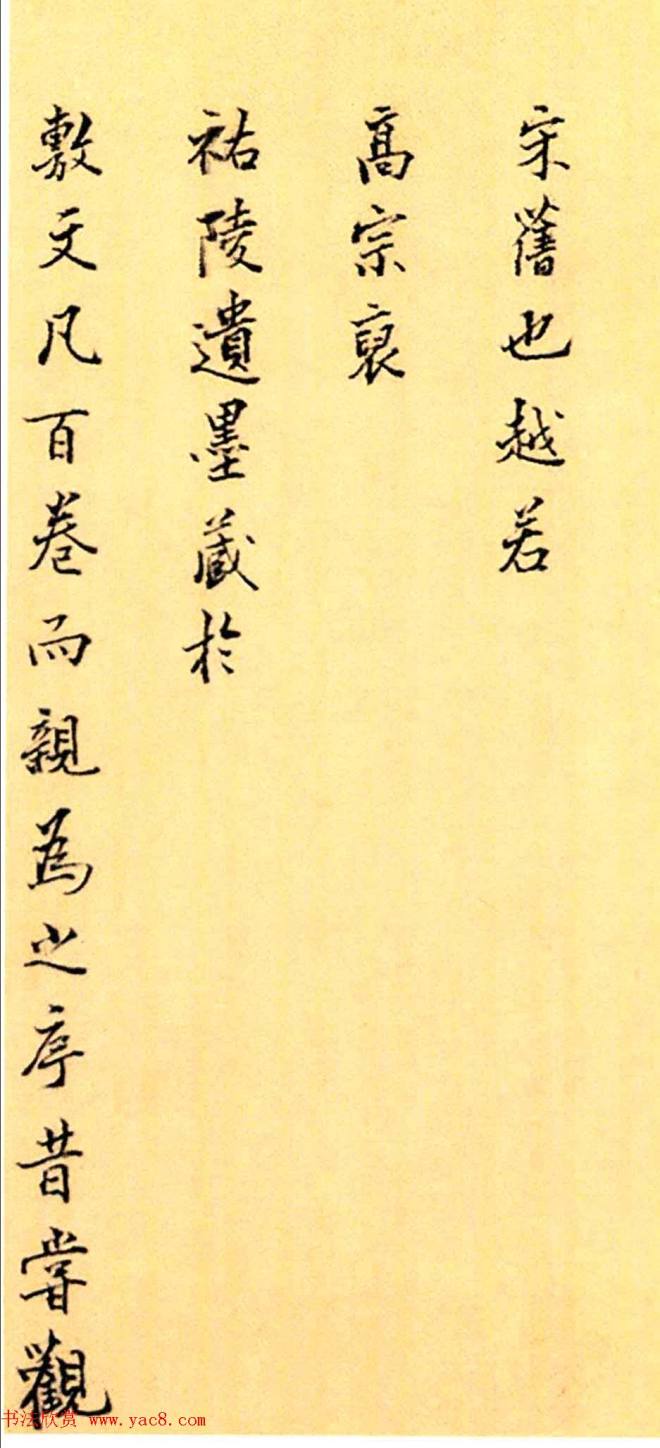 宋舊也越若
高宗裒
祐陵遺墨蔵於
敷文凡百卷而親為之序昔嘗觀
书法欣赏 www.yac8.com